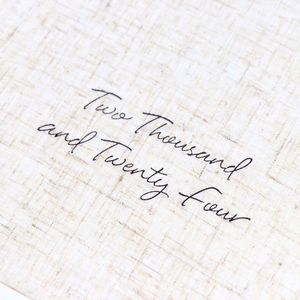 Two Thousand
and Twenty Four